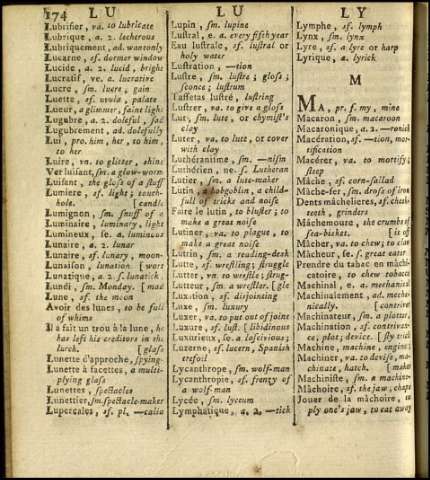 174 LU LU LY
Lubrifier, va. to lubricate
Lubrique, a. 2. lecherous
Lubriquement, ad. wantonly
Lucarne, sf. dormer window
Lucide, a. 2. lucid, bright
Lucratif, ve. a. lucrative
Lucre, sm. lucre, gain
Luette, sf. uvula, palate
Lueur, a glimmer, faint light
Lugubre, a. 2. doleful, sad
Lugubrement, ad. dolefully
Lui, pro. him, her, to him
to her
Luire, vn. to glitter, shine
Ver luisant, sm. a glow-worm
Luisant, the gloss of a stuff
Lumiere, sf. light; touch-
hole. [candle
Lumignon, sm. snuff of a
Luminaire, luminary, light
Lumineux, se. a. luminous
Lunaire, a. 2. lunar
Lunaire, sf. lunary, moon-
Lunaison, lunation [wort
Lunatique, a. 2. s. lunatick
Lundi, sm. Monday. [mad
Lune, sf. the moon
Avoir des lunes, to be full
of whims
Il a fait un trou à la lune, he
has left his creditors in the
lurch. [glass
Lunette d'approche, spying-
Lunette à facettes, a multi-
plying glass
Lunettes, spectacles
Lunettier, sm. spectacle-maker
Lupercales, sf. pl. —calia
Lupin, sm. lupine
Lustral, e. a. every fifth year
Eau lustrale, sf. lustral or
holy water
Lustration, —tion
Lustre, sm. lustre; gloss;
sconce; lustrum
Taffetas lustré, lustring
Lustrer, va. to give a gloss
Lut, sm. lute, or chymist's
clay
Luter, va. to lute, or cover
with clay
Luthéranisme, sm. —nism
Luthérien, ne. s. Lutheran
Lutier, sm. a lute-maker
Lutin, a hobgoblin, a child-
full of tricks and noise
Faire le lutin, to bluster; to
make a great noise
Lutiner, va. to plague, to
make a great noise
Lutrin, sm. a reading-desk
Lutte, sf. wrestling; struggle
Lutter, vn. to wrestle; strug-
Lutteur, sm. a wrestler. [gle
Luxation, sf. disjointing
Luxe, sm. luxury
Luxer, va. to put out of joint
Luxure, sf. lust. [libidinous
Luxurieux, se. a. lascivious;
Luzerne, sf. lucern, Spanish
trefoil
Lycanthrope, sm. wolf-man
Lycanthropie, sf. frenzy of
a wolf-man
Lycée, sm. lyceum
Lymphatique, a. 2. —tick
Lymphe, sf. lymph
Lynx, sm. lynx
Lyre, sf. a lyre or harp
Lyrique, a. lyrick
M
MA, pr. f. my, mine
Macaron, sm. macaroon
Macaronique, a. 2. —ronick
Macération, sf. —tion, mor-
tification
Macérer, va. to mortify;
steep
Mâche, sf. corn-sallad
Mâche-fer, sm. dross of iron
Dents mâchelieres, sf. cheek-
teeth, grinders
Mâchemoure, the crumbs of
sea-bisket. [is of
Mâcher, va. to chew; to
Mâcheur, se. s. great eater
Prendre du tabac en mâchi-
catoire, to chew tobacco
Machinal, e. a. mechanical
Machinalement, ad. mecha-
nically. [contriver
Machinateur, sm. a plotter,
Machination, sf. contrivan-
ce, plot; device. [sly trick
Machine, machine, engine;
Machiner, va. to devise, ma-
chinate, hatch. [maker
Machiniste, sm. a machine-
Mâchoire, sf. the jaw, chaps
Jouer de la mâchoire, to
ply one's jaw, to eat away